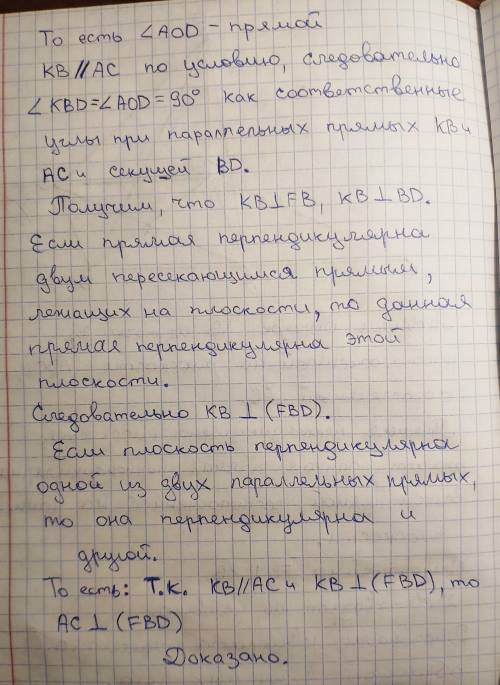 То есть ∠AOD - прямой
KB∥AC по условию, следовательно
∠KBD=∠AOD=90° как соответственные
углы при параллельных прямых KB и
AC и секущей BD.
Получим, что KB⊥FB, KB⊥BD.
Если прямая перпендикулярна
двум пересекающимся прямым,
лежащих на плоскости, то данная
прямая перпендикулярна этой
плоскости.
Следовательно KB ⊥ (FBD).
Если плоскость перпендикулярна
одной из двух параллельных прямых,
то она перпендикулярна и
другой.
То есть: Т.К. KB∥AC и KB⊥(FBD), то
AC⊥(FBD)
Доказано.